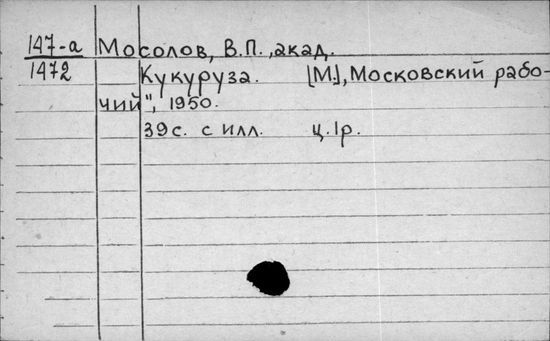 147-а Мосолов, В.П., акад.
1472 Кукуруза. [М], Московский рабо-
чий", 1950.
39 с. с илл. ц. 1р.